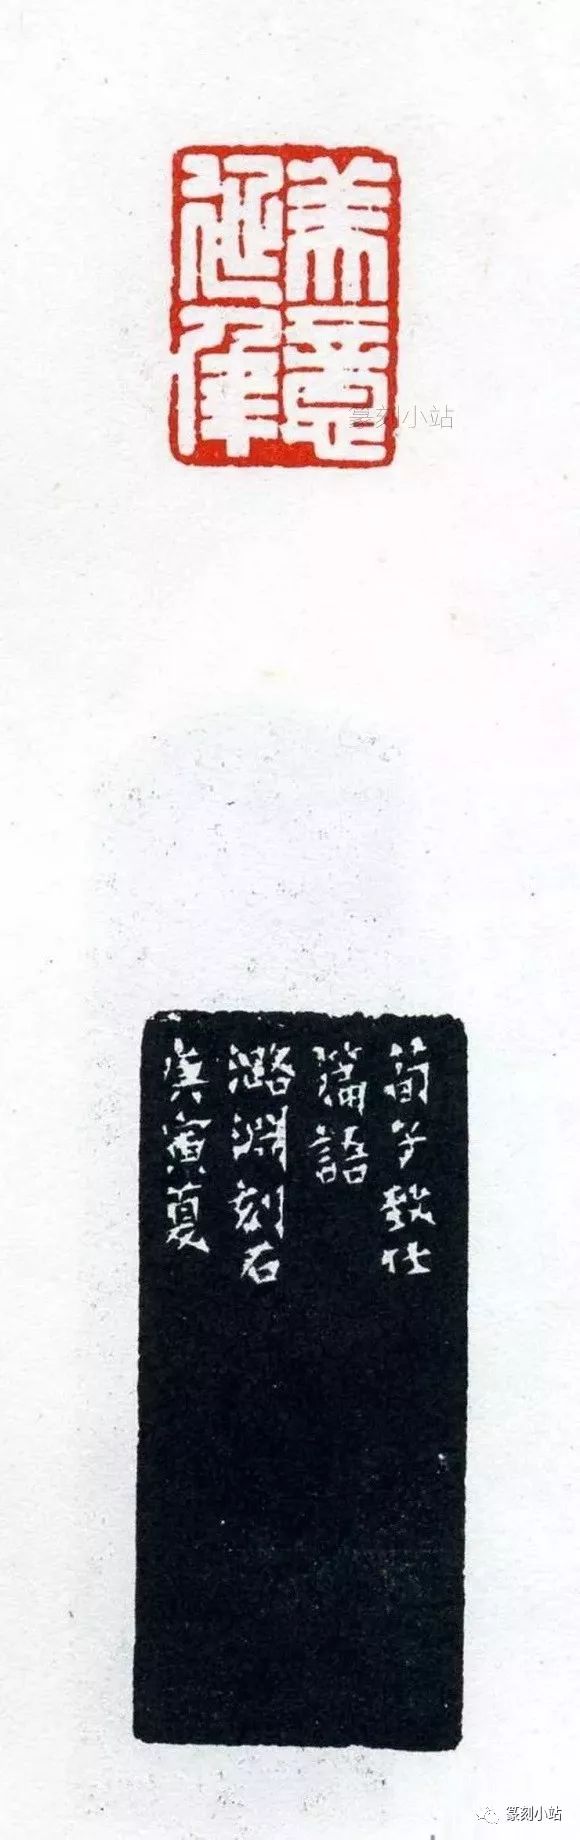 美意
延年
篆刻小站
荀子致仕
篇語
潞淵刻石
庚寅夏
篆刻小站